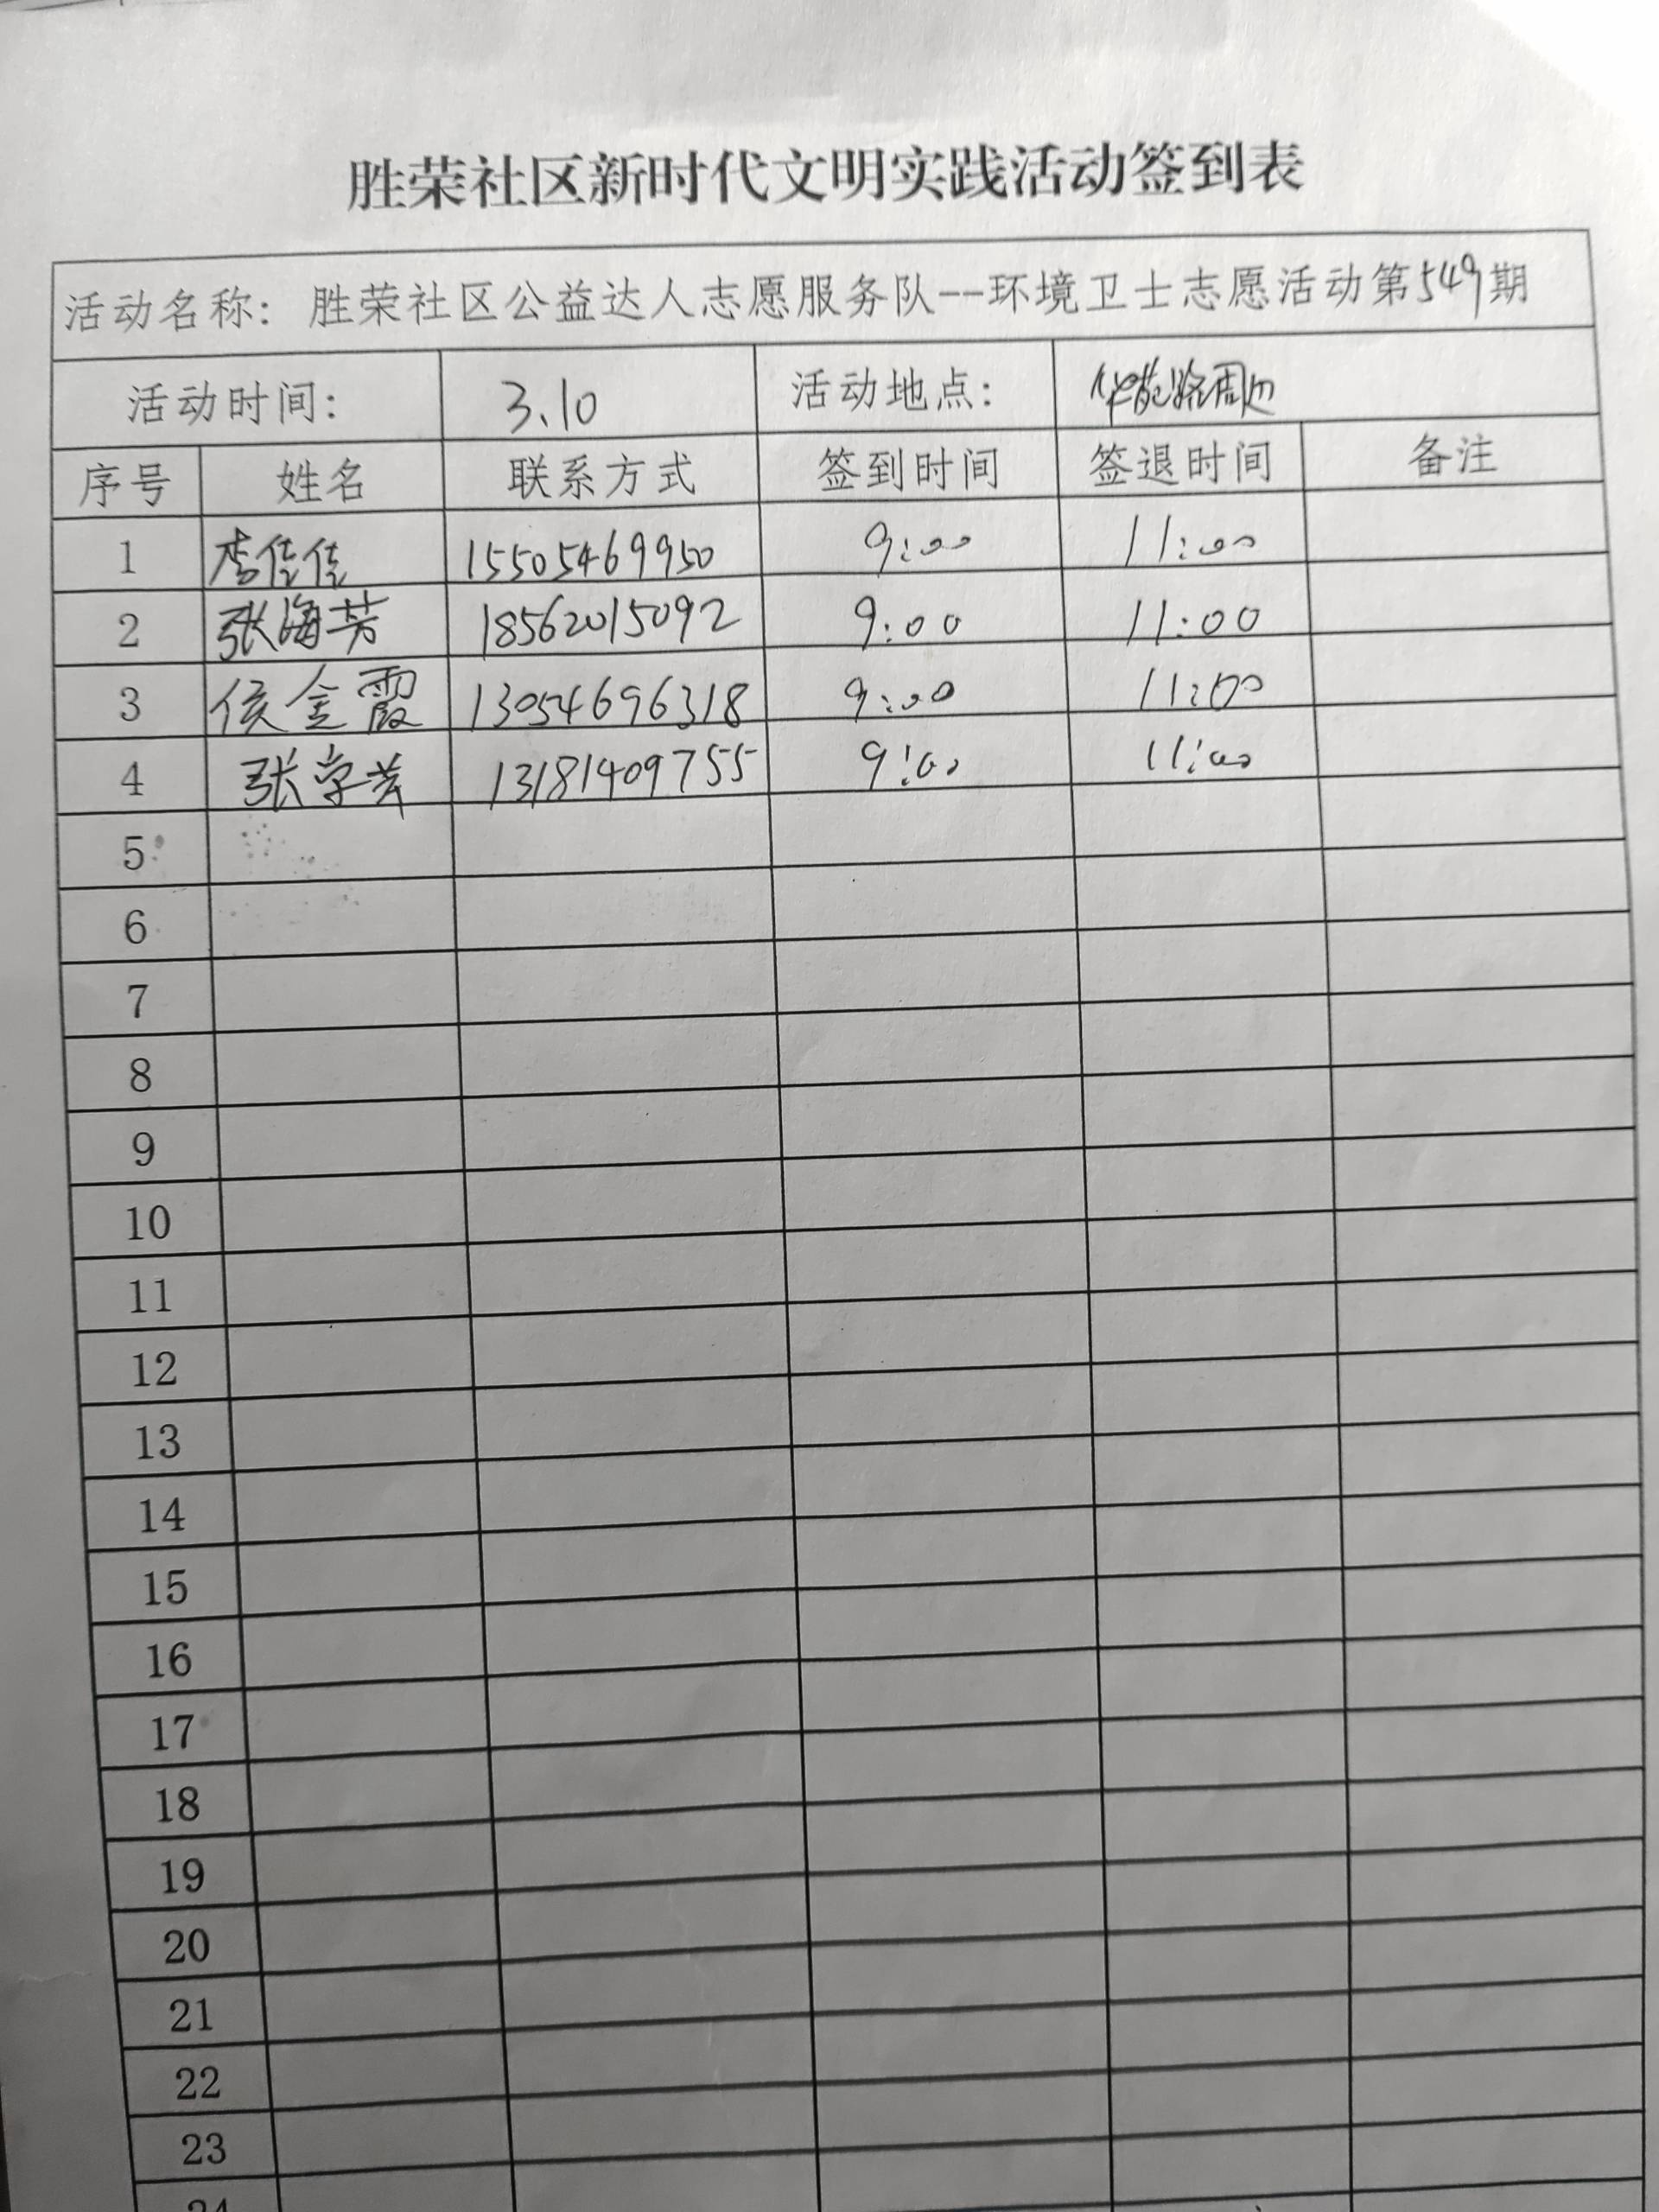 胜荣社区新时代文明实践活动签到表
活动名称：胜荣社区公益达人志愿服务队--环境卫士志愿活动第549期
活动时间： 3.10 活动地点： 路周边
序号 姓名 联系方式 签到时间 签退时间 备注
1 李佳佳 15505469950 9:00 11:00
2 张海芳 18562015092 9:00 11:00
3 侯金霞 13054696318 9:00 11:00
4 张学 13181409755 9:00 11:00
5
6
7
8
9
10
11
12
13
14
15
16
17
18
19
20
21
22
23
24